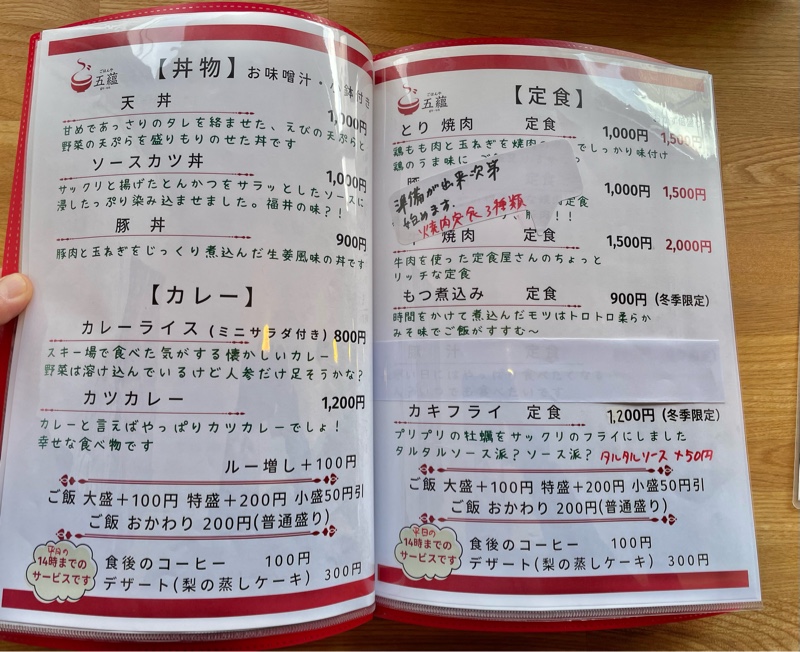 ごはんや
五蘊
【丼物】お味噌汁・小鉢付き
天 丼 1,000円
甘めであっさりのタレを絡ませた、えびの天ぷらと
野菜の天ぷらを盛りもりのせた丼です
ソースカツ丼 1,000円
サックリと揚げたとんかつをサラッとしたソースに
浸したっぷり染み込ませました。福井の味?!
豚 丼 900円
豚肉と玉ねぎをじっくり煮込んだ生姜風味の丼です
【カレー】
カレーライス(ミニサラダ付き) 800円
スキー場で食べた気がする懐かしいカレー
野菜は溶け込んでいるけど人参だけ足そうかな?
カツカレー 1,200円
カレーと言えばやっぱりカツカレーでしょ!
幸せな食べ物です
ルー増し+100円
ご飯 大盛+100円 特盛+200円 小盛50円引
ご飯 おかわり 200円(普通盛り)
平日の
14時までの
サービスです
食後のコーヒー 100円
デザート(梨の蒸しケーキ) 300円
ごはんや
五蘊
【定食】
とり 焼肉 定食 1,000円 1,500円
鶏もも肉と玉ねぎを焼肉 でしっかり味付け
鶏のうま味に
準備が出来次第
始めます。
焼肉定食3種類
1,000円 1,500円
定食
!!
焼肉 定食 1,500円 2,000円
牛肉を使った定食屋さんのちょっと
リッチな定食
もつ煮込み 定食 900円(冬季限定)
時間をかけて煮込んだモツはトロトロ柔らか
みそ味でご飯がすすむ〜
カキフライ 定食 1,200円(冬季限定)
プリプリの牡蠣をサックリのフライにしました
タルタルソース派?ソース派? タルタルソース +50円
ご飯 大盛+100円 特盛+200円 小盛50円引
ご飯 おかわり 200円(普通盛り)
平日の
14時までの
サービスです
食後のコーヒー 100円
デザート(梨の蒸しケーキ) 300円